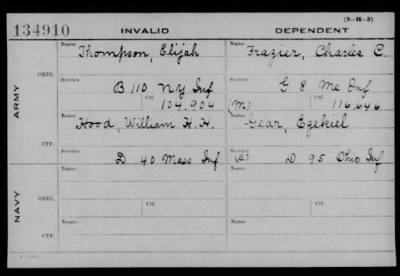 (3-H-5)
134910 INVALID DEPENDENT
Name Thompson, Elijah Name Frazier, Charles C.
ARMY
ORIG.
Service B 110 NY Inf Service G 8 Me Inf
Ctf. 104,904 (M) Ctf. 116,646
Name Hood, William H. H. Name Gear, Ezekiel
CTF.
Service D 40 Mass Inf Service (C) D 95 Ohio Inf
NAVY
ORIG.
Name Name
Ctf. Ctf.
CTF.
Name Name